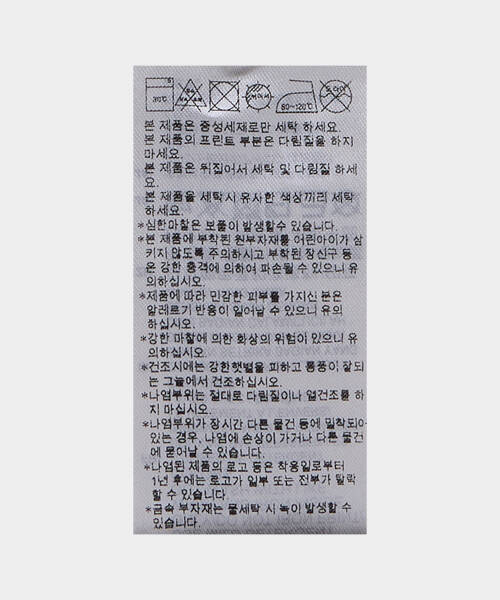 30℃
80~120℃
드라이
본 제품은 중성세제로만 세탁 하세요.
본 제품의 프린트 부분은 다림질을 하지
마세요.
본 제품은 뒤집어서 세탁 및 다림질 하세
요.
본 제품을 세탁시 유사한 색상끼리 세탁
하세요.
*심한마찰은 보풀이 발생할수 있습니다.
*본 제품에 부착된 원부자재를 어린아이가 삼
키지 않도록 주의하시고 부착된 장신구 등
은 강한 충격에 의하여 파손될 수 있으니 유
의하십시오.
*제품에 따라 민감한 피부를 가지신 분은
알레르기 반응이 일어날 수 있으니 유의
하십시오.
*강한 마찰에 의한 화상의 위험이 있으니 유
의하십시오.
*건조시에는 강한햇볕을 피하고 통풍이 잘되
는 그늘에서 건조하십시오.
*나염부위는 절대로 다림질이나 열건조를 하
지 마십시오.
*나염부위가 장시간 다른 물건 등에 밀착되어
있는 경우, 나염에 손상이 가거나 다른 물건
에 묻어날 수 있습니다.
*나염된 제품의 로고 등은 착용일로부터
1년 후에는 로고가 일부 또는 전부가 탈락
할 수 있습니다.
*금속 부자재는 물세탁 시 녹이 발생할 수
있습니다.